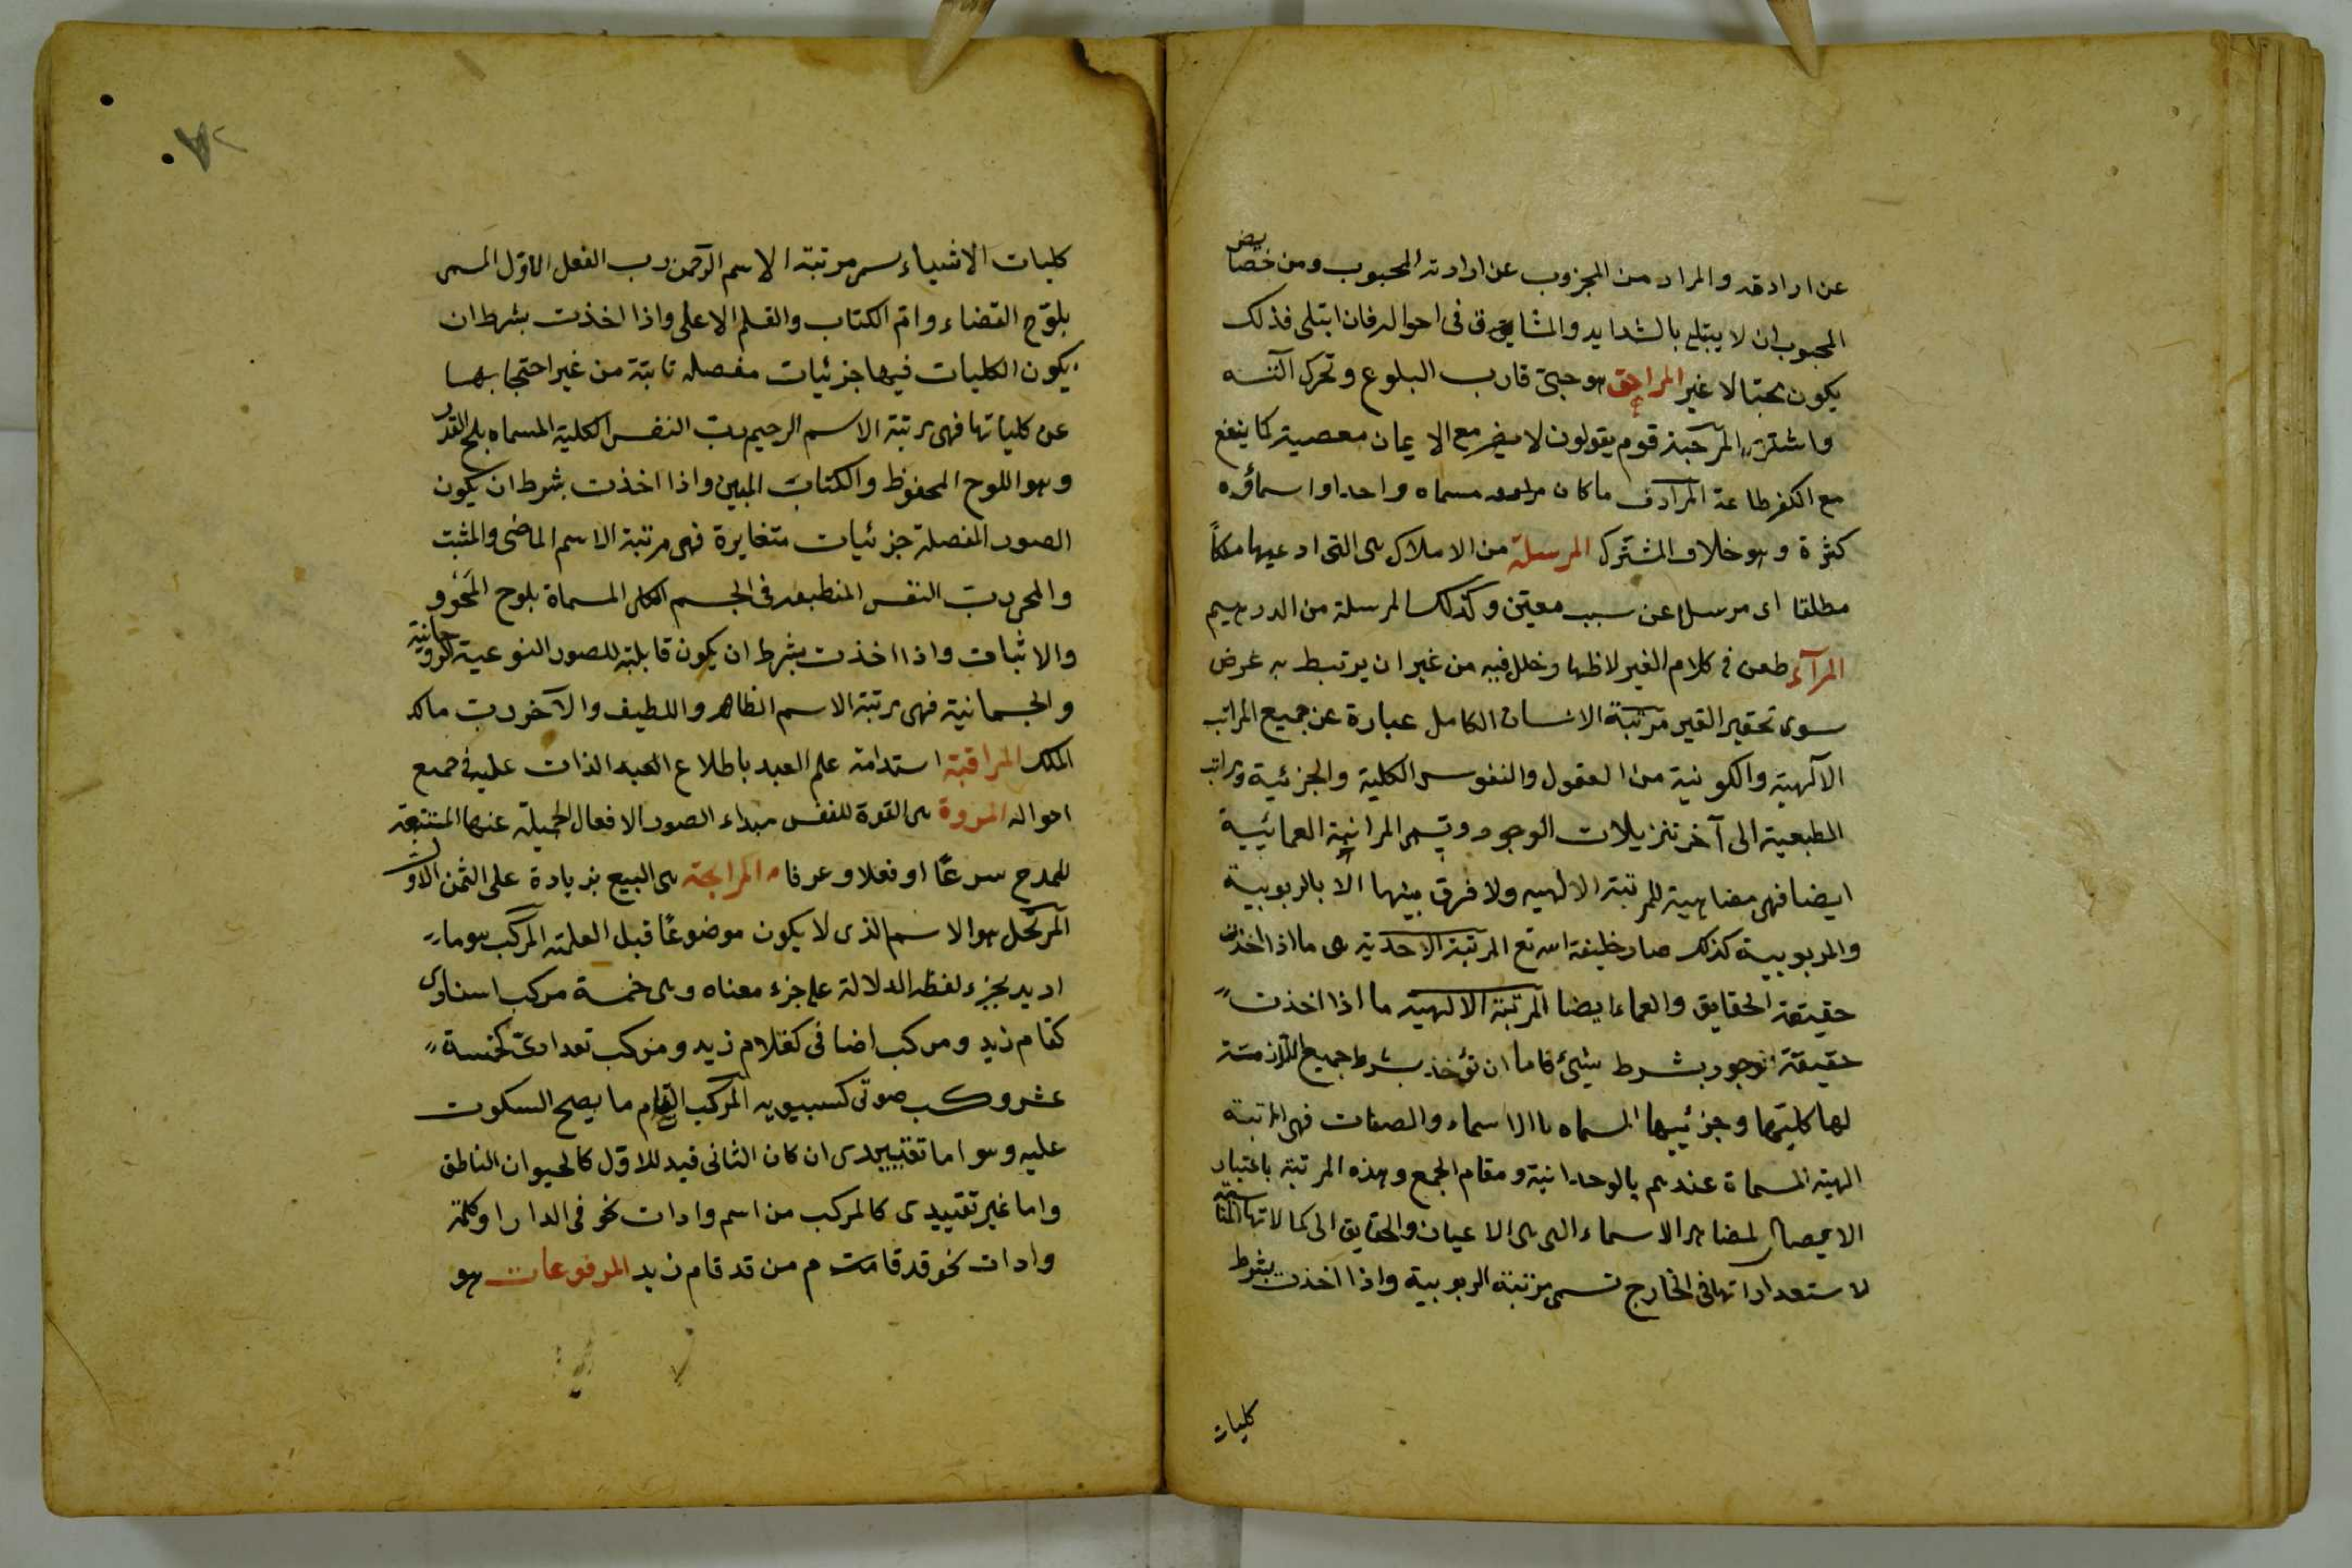 عن ارادته والمراد من المجزوب عن ارادته المحبوب ومن خصايص
المحبوب ان لا يبتلى بالشدايد والمشايق فى احواله فان ابتلى فذلك
يكون محبا لا غير المراهق هو حبىّ قارب البلوغ وتحرك آلته
واشتهى المرجئة قوم يقولون لا يضر مع الايمان معصية كما ينفع
مع الكفر طاعة المرادف ما كان مسماه واحدا واسماؤه
كثرة وهو خلاف المشترك المرسلة من الاملاك هى التى ادعيها ملكاً
مطلقا اى مرسل عن سبب معيّن وكذلك المرسلة من الدرهيم
المرآء طعن فى كلام الغير لاظهار خلل فيه من غير ان يرتبط به غرض
سوى تحقير الغير مرتبة الانسان الكامل عبارة عن جميع المراتب
الآلهية والكونية من العقول والنفوس الكلية والجزئية ومراتب
الطبعية الى آخر تنزيلات الوجود وتسمى المرانية العمائيية
ايضا فهى مضاهية للمرتبة الالهيه ولا فرق بينها الا بالربوبية
والمربوبية كذلك صار خليفة الله تع المرتبة الاحدية هى ما اذا اخذت
حقيقة الحقايق والعماء ايضا المرتبة الالهية ما اذا اخذت
حقيقة الوجود بشرط شئ فاما ان تؤخذ بشرط جميع اللازمة
لها كليتها وجزئيها المسماه بالاسماء والصفات فهى المرتبة
الهية المسماة عندهم بالوحدانية ومقام الجمع وهذه المرتبة باعتبار
الايصال لمضاهر الاسماء التى هى الاعيان والحقايق الى كمالاتها المناسبة
لاستعداداتها فى الخارج تسمى مرتبة الربوبية واذا اخذت بشرط
كليات
كليات الاشياء سمى مرتبة الاسم الرحمن رب الفعل الاول المسمى
بلوح القضاء وامّ الكتاب والقلم الاعلى واذا اخذت بشرط ان
يكون الكليات فيها جزئيات مفصله ثابتة من غير احتجابها
عن كلياتها فهى مرتبة الاسم الرحيم رب النفس الكلية المسماه بلوح القدر
وهو اللوح المحفوظ والكتاب المبين واذا اخذت بشرط ان يكون
الصور المفصلة جزئيات متغايرة فهى مرتبة الاسم الماضى والمثبت
والمحى رب النفس المنطبعه فى الجسم الكلى المسماة بلوح المحو و
والاثبات واذا اخذت بشرط ان يكون قابلة للصور النوعية الروحانية
والجسمانية فهى مرتبة الاسم الظاهر واللطيف والآخر رب ماكد
الملك المراقبة استدامة علم العبد باطلاع العبد الذات عليه فى جميع
احواله المروة هى القوة للنفس مبداء الصور الافعال الجميلة عنها المستتبعة
للمدح سرعًا او فعلا وعرفا المرابحة هى البيع بزيادة على الثمن الاول
المرتحل هو الاسم الذى لا يكون موضوعًا قبل العلمية المركب هو ما
اديد بجزء لفظه الدلالة على جزء معناه وهى خمسة مركب اسنادى
كقام زيد ومركب اضافى كغلام زيد ومركب تعدادىّ كخمسة
عشر وكب صوتى كسيبويه المركب التام ما يصح السكوت
عليه وهو اما تقييدى ان كان الثانى قيد للاول كالحيوان الناطق
واما غير تقييدى كالمركب من اسم وادات نحو فى الدار او كلمة
وادات نحو قد قامت م من قد قام زيد المرفوعات هو